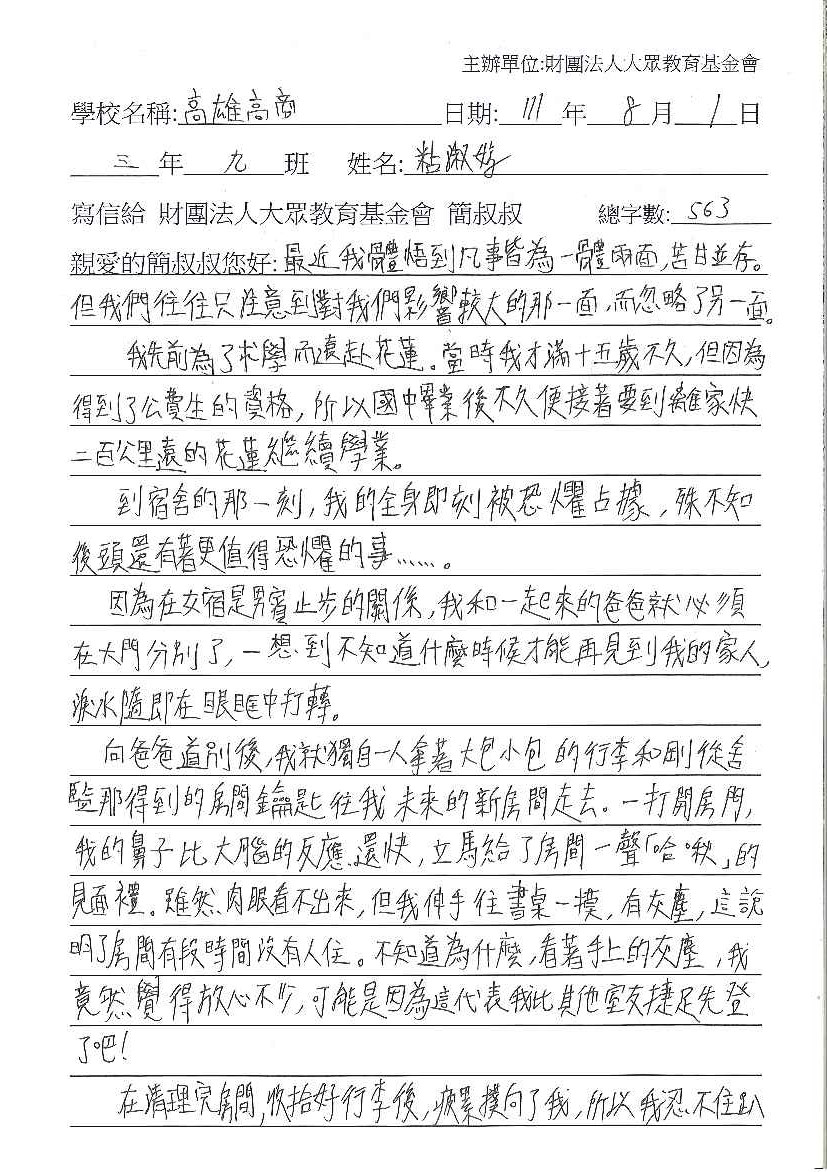 主辦單位:財團法人大眾教育基金會
學校名稱:高雄高商 日期: 111 年 8 月 1 日
三 年 九 班 姓名: 粘淑婷
寫信給 財團法人大眾教育基金會 簡叔叔 總字數: 563
親愛的簡叔叔您好:最近我體悟到凡事皆為一體兩面,苦甘並存。
但我們往往只注意到對我們影響較大的那一面,而忽略了另一面。
我先前為了求學而遠赴花蓮。當時我才滿十五歲不久,但因為
得到了公費生的資格,所以國中畢業後不久便接著要到離家快
二百公里遠的花蓮繼續學業。
到宿舍的那一刻,我的全身即刻被恐懼占據,殊不知
後頭還有著更值得恐懼的事……。
因為在女宿是男賓止步的關係,我和一起來的爸爸就必須
在大門分別了,一想到不知道什麼時候才能再見到我的家人,
淚水隨即在眼眶中打轉。
向爸爸道別後,我就獨自一人拿著大包小包的行李和剛從舍
監那得到的房間鑰匙往我未來的新房間走去。一打開房門,
我的鼻子比大腦的反應還快,立馬給了房間一聲「哈啾」的
見面禮。雖然肉眼看不出來,但我伸手往書桌一摸,有灰塵,這說
明了房間有段時間沒有人住。不知道為什麼,看著手上的灰塵,我
竟然覺得放心不少,可能是因為這代表我比其他室友捷足先登
了吧!
在清理完房間,收拾好行李後,疲累撲向了我,所以我忍不住趴